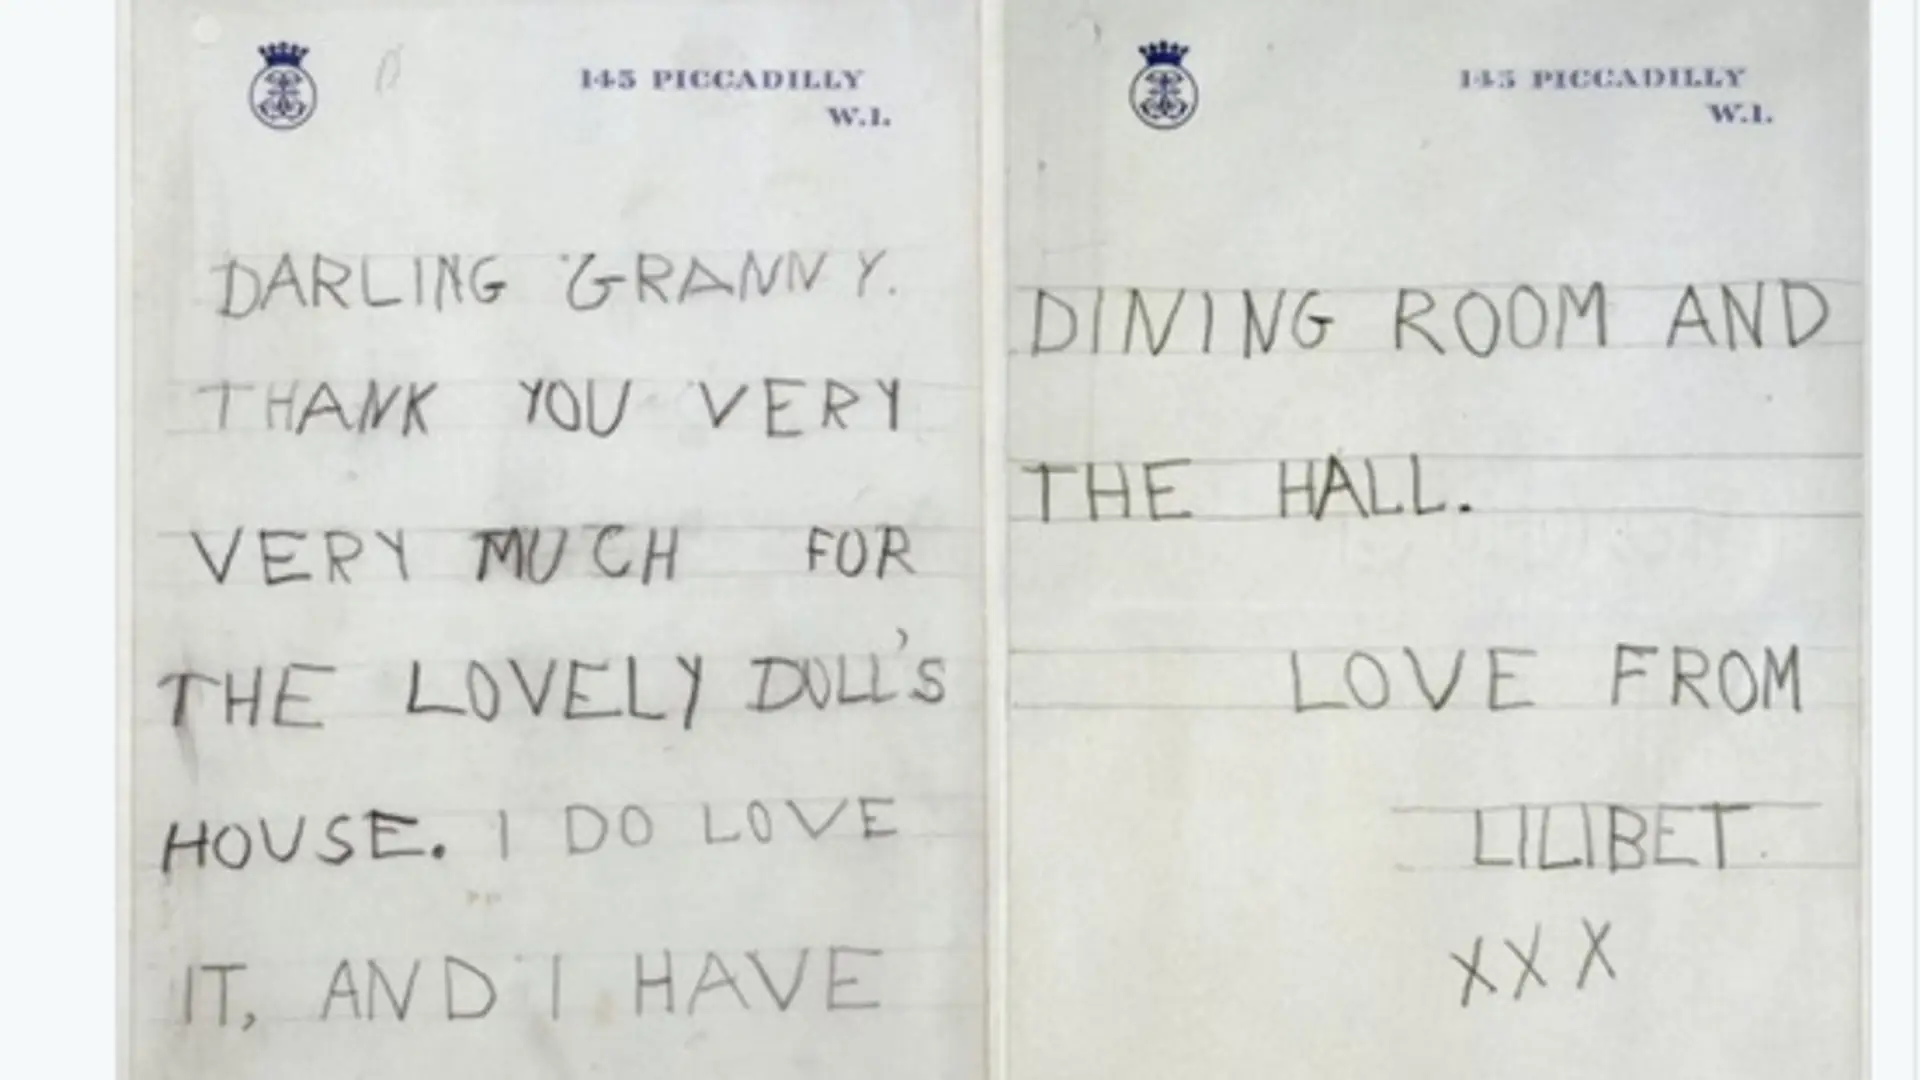 145 PICCADILLY
W.1.
DARLING GRANNY.
THANK YOU VERY
VERY MUCH FOR
THE LOVELY DOLL'S
HOUSE. I DO LOVE
IT, AND I HAVE
145 PICCADILLY
W.1.
DINING ROOM AND
THE HALL.
LOVE FROM
LILIBET.
XXX